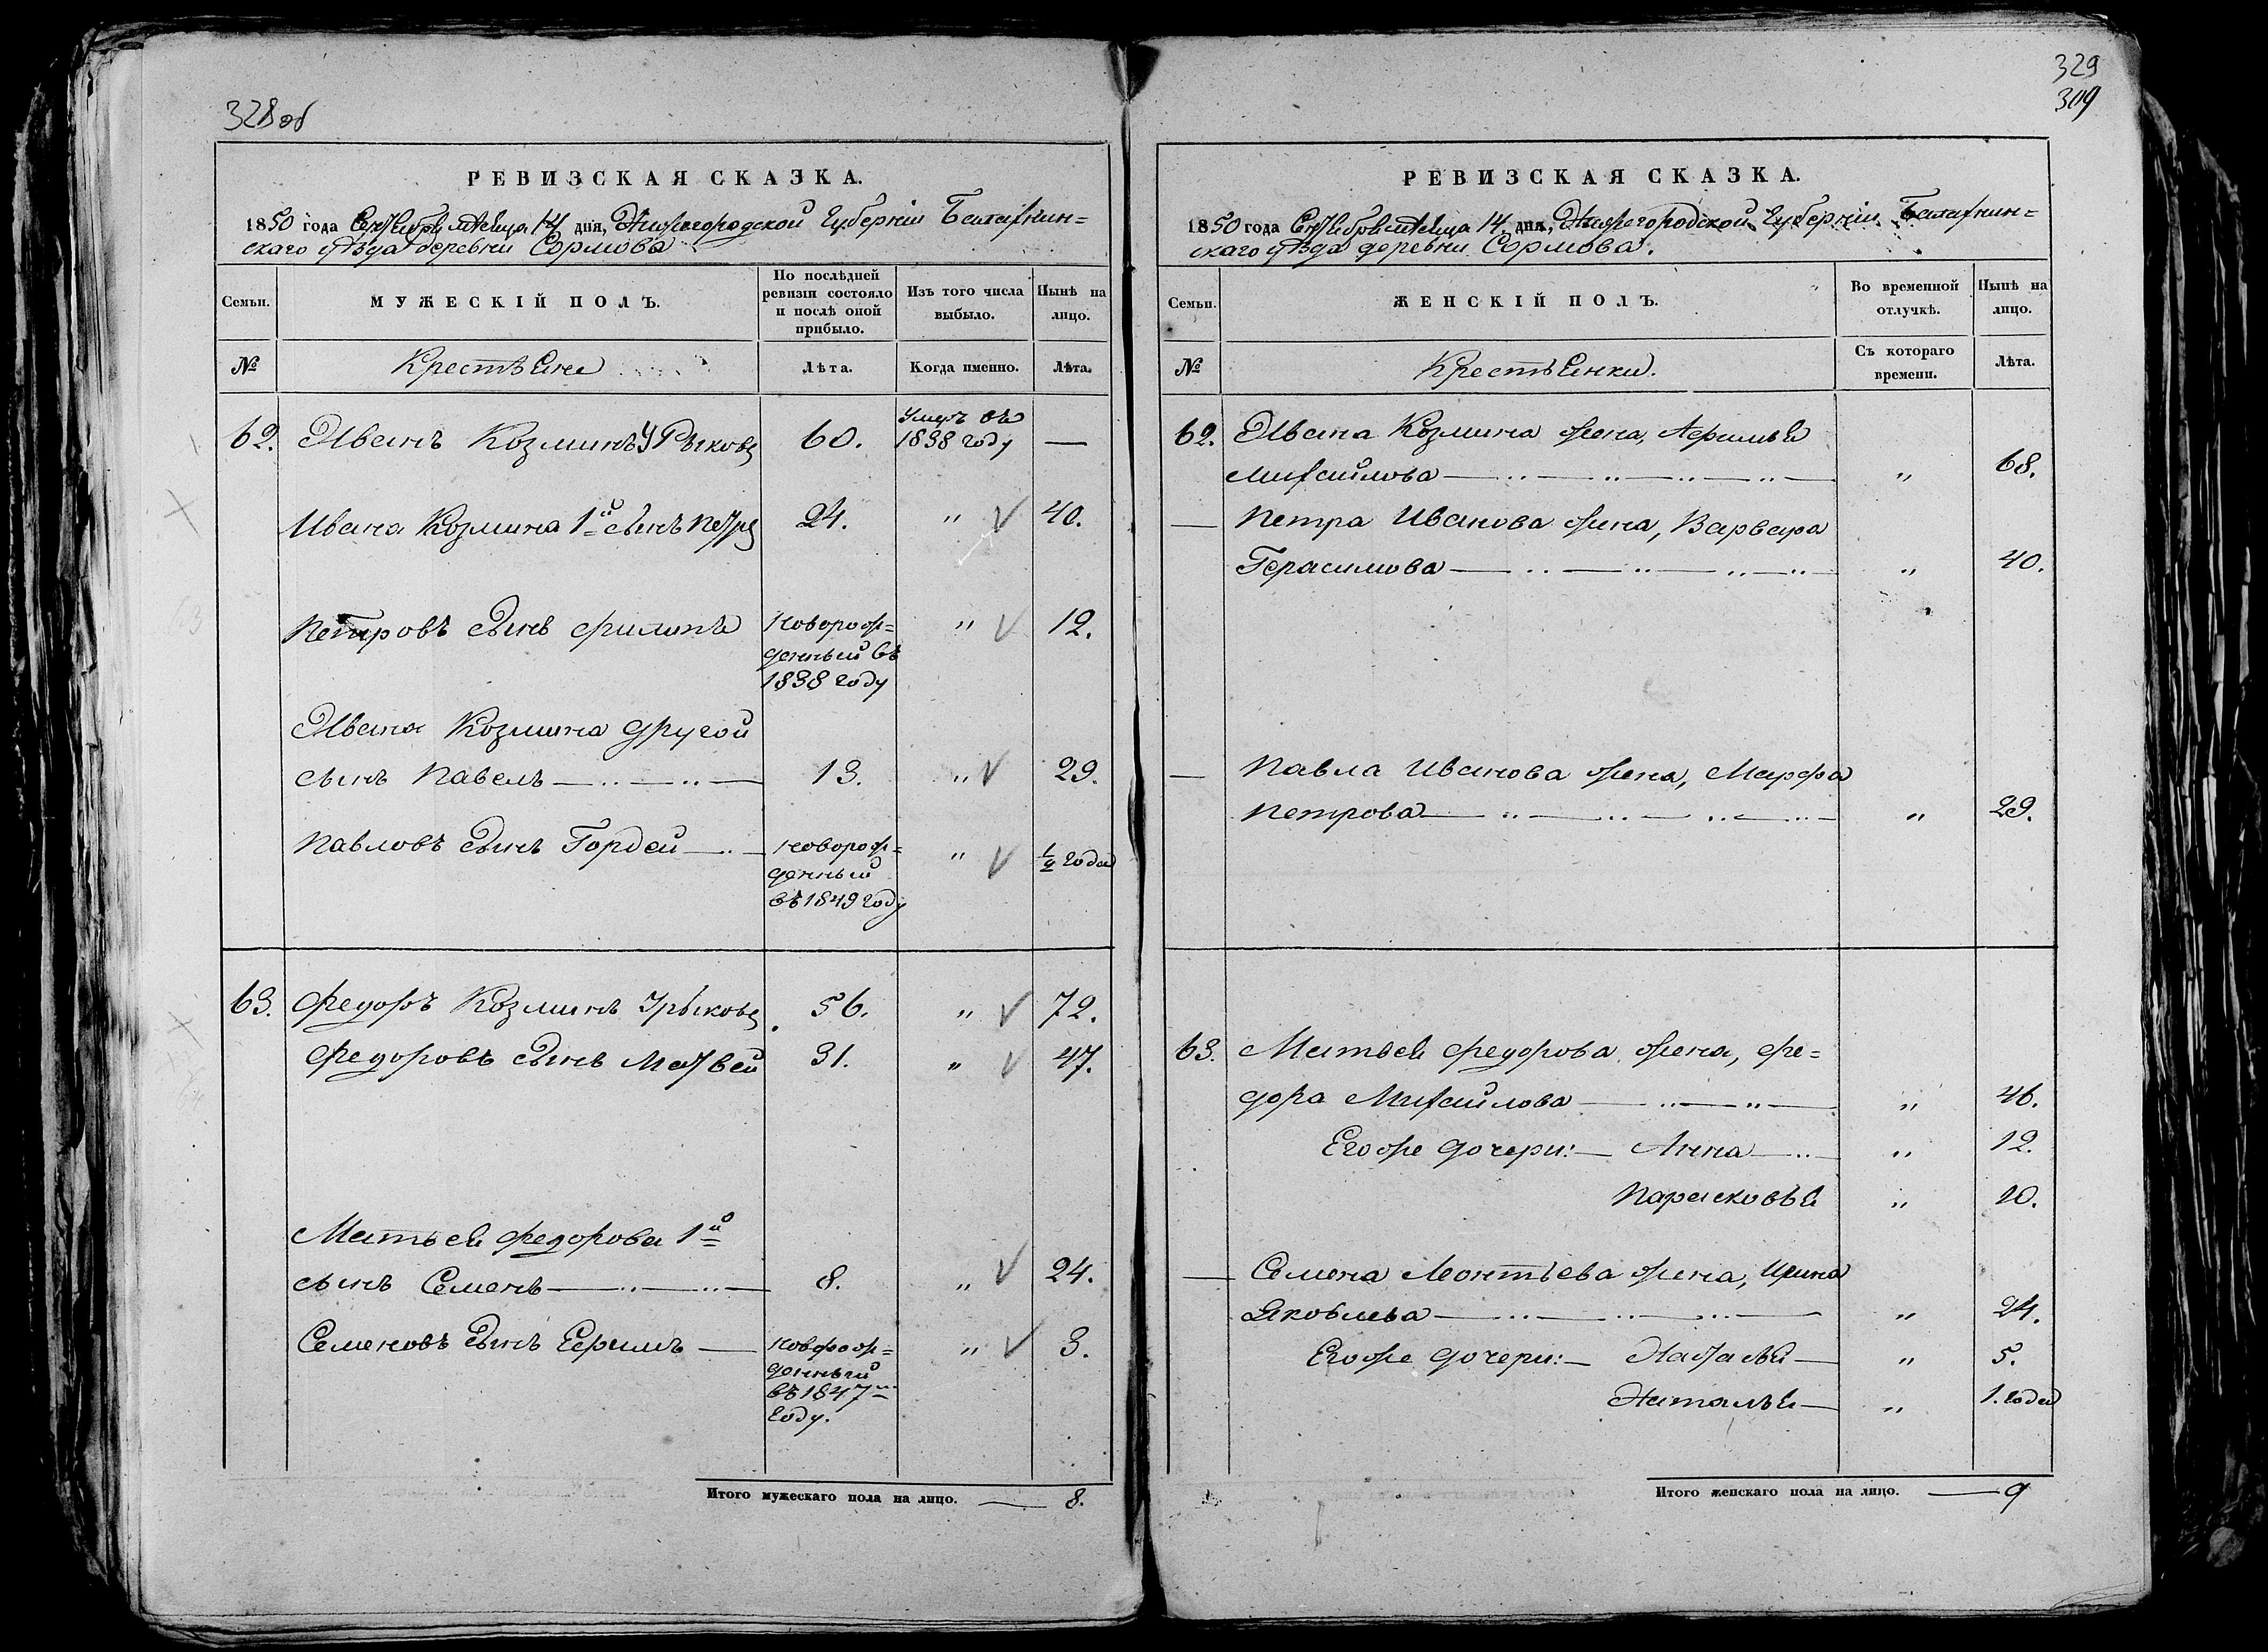 328об
РЕВИЗСКАЯ СКАЗКА.
1850 года Сентября месяца 14 дня, Нижегородской Губерніи Балахнин=
скаго уѣзда деревни Сормова
Семьи.
МУЖЕСКІЙ ПОЛЪ.
По послѣдней
ревизіи состояло
и послѣ оной
прибыло.
Изъ того числа
выбыло.
Нынѣ на
лицо.
№
Крестьяне
Лѣта.
Когда именно.
Лѣта.
62. Иванъ Козминъ Урыковъ 60. Умеръ въ 1838 году —
Ивана Козмина 1й сынъ Петръ 24. " 40.
Петровъ сынъ Филипъ " 12.
новорож=
денный въ
1838 году
Ивана Козмина другой
сынъ Павелъ 13. " 29.
Павловъ сынъ Гордей " ½ года
новорож=
денный
въ 1849 году
63. Федоръ Козминъ Урыковъ 56. " 72.
Федоровъ сынъ Матвей 31. " 47.
Матвея Федорова 1й
сынъ Семенъ 8. " 24.
Семеновъ сынъ Ефимъ " 3.
новорож=
денный
въ 1847м
году.
Итого мужескаго пола на лицо. — 8.
329
309
РЕВИЗСКАЯ СКАЗКА.
1850 года Сентября месяца 14 дня, Нижегородской Губерніи Балахнин=
скаго уѣзда деревни Сормова.
Семьи.
ЖЕНСКІЙ ПОЛЪ.
Во временной
отлучкѣ.
Нынѣ на
лицо.
№
Крестьянки.
Съ котораго
времени.
Лѣта.
62. Ивана Козмина жена, Афимья
Михайлова " 68.
— Петра Иванова жена, Варвара
Герасимова " 40.
— Павла Иванова жена, Марфа
Петрова " 29.
63. Матвея Федорова жена, Фе=
дора Михайлова " 46.
Егоже дочери: — Анна " 12.
Парасковья " 10.
— Семена Леонтьева жена, Ирина
Яковлева " 24.
Егоже дочери: — Настасья " 5.
Наталья " 1. года
Итого женскаго пола на лицо. — 9